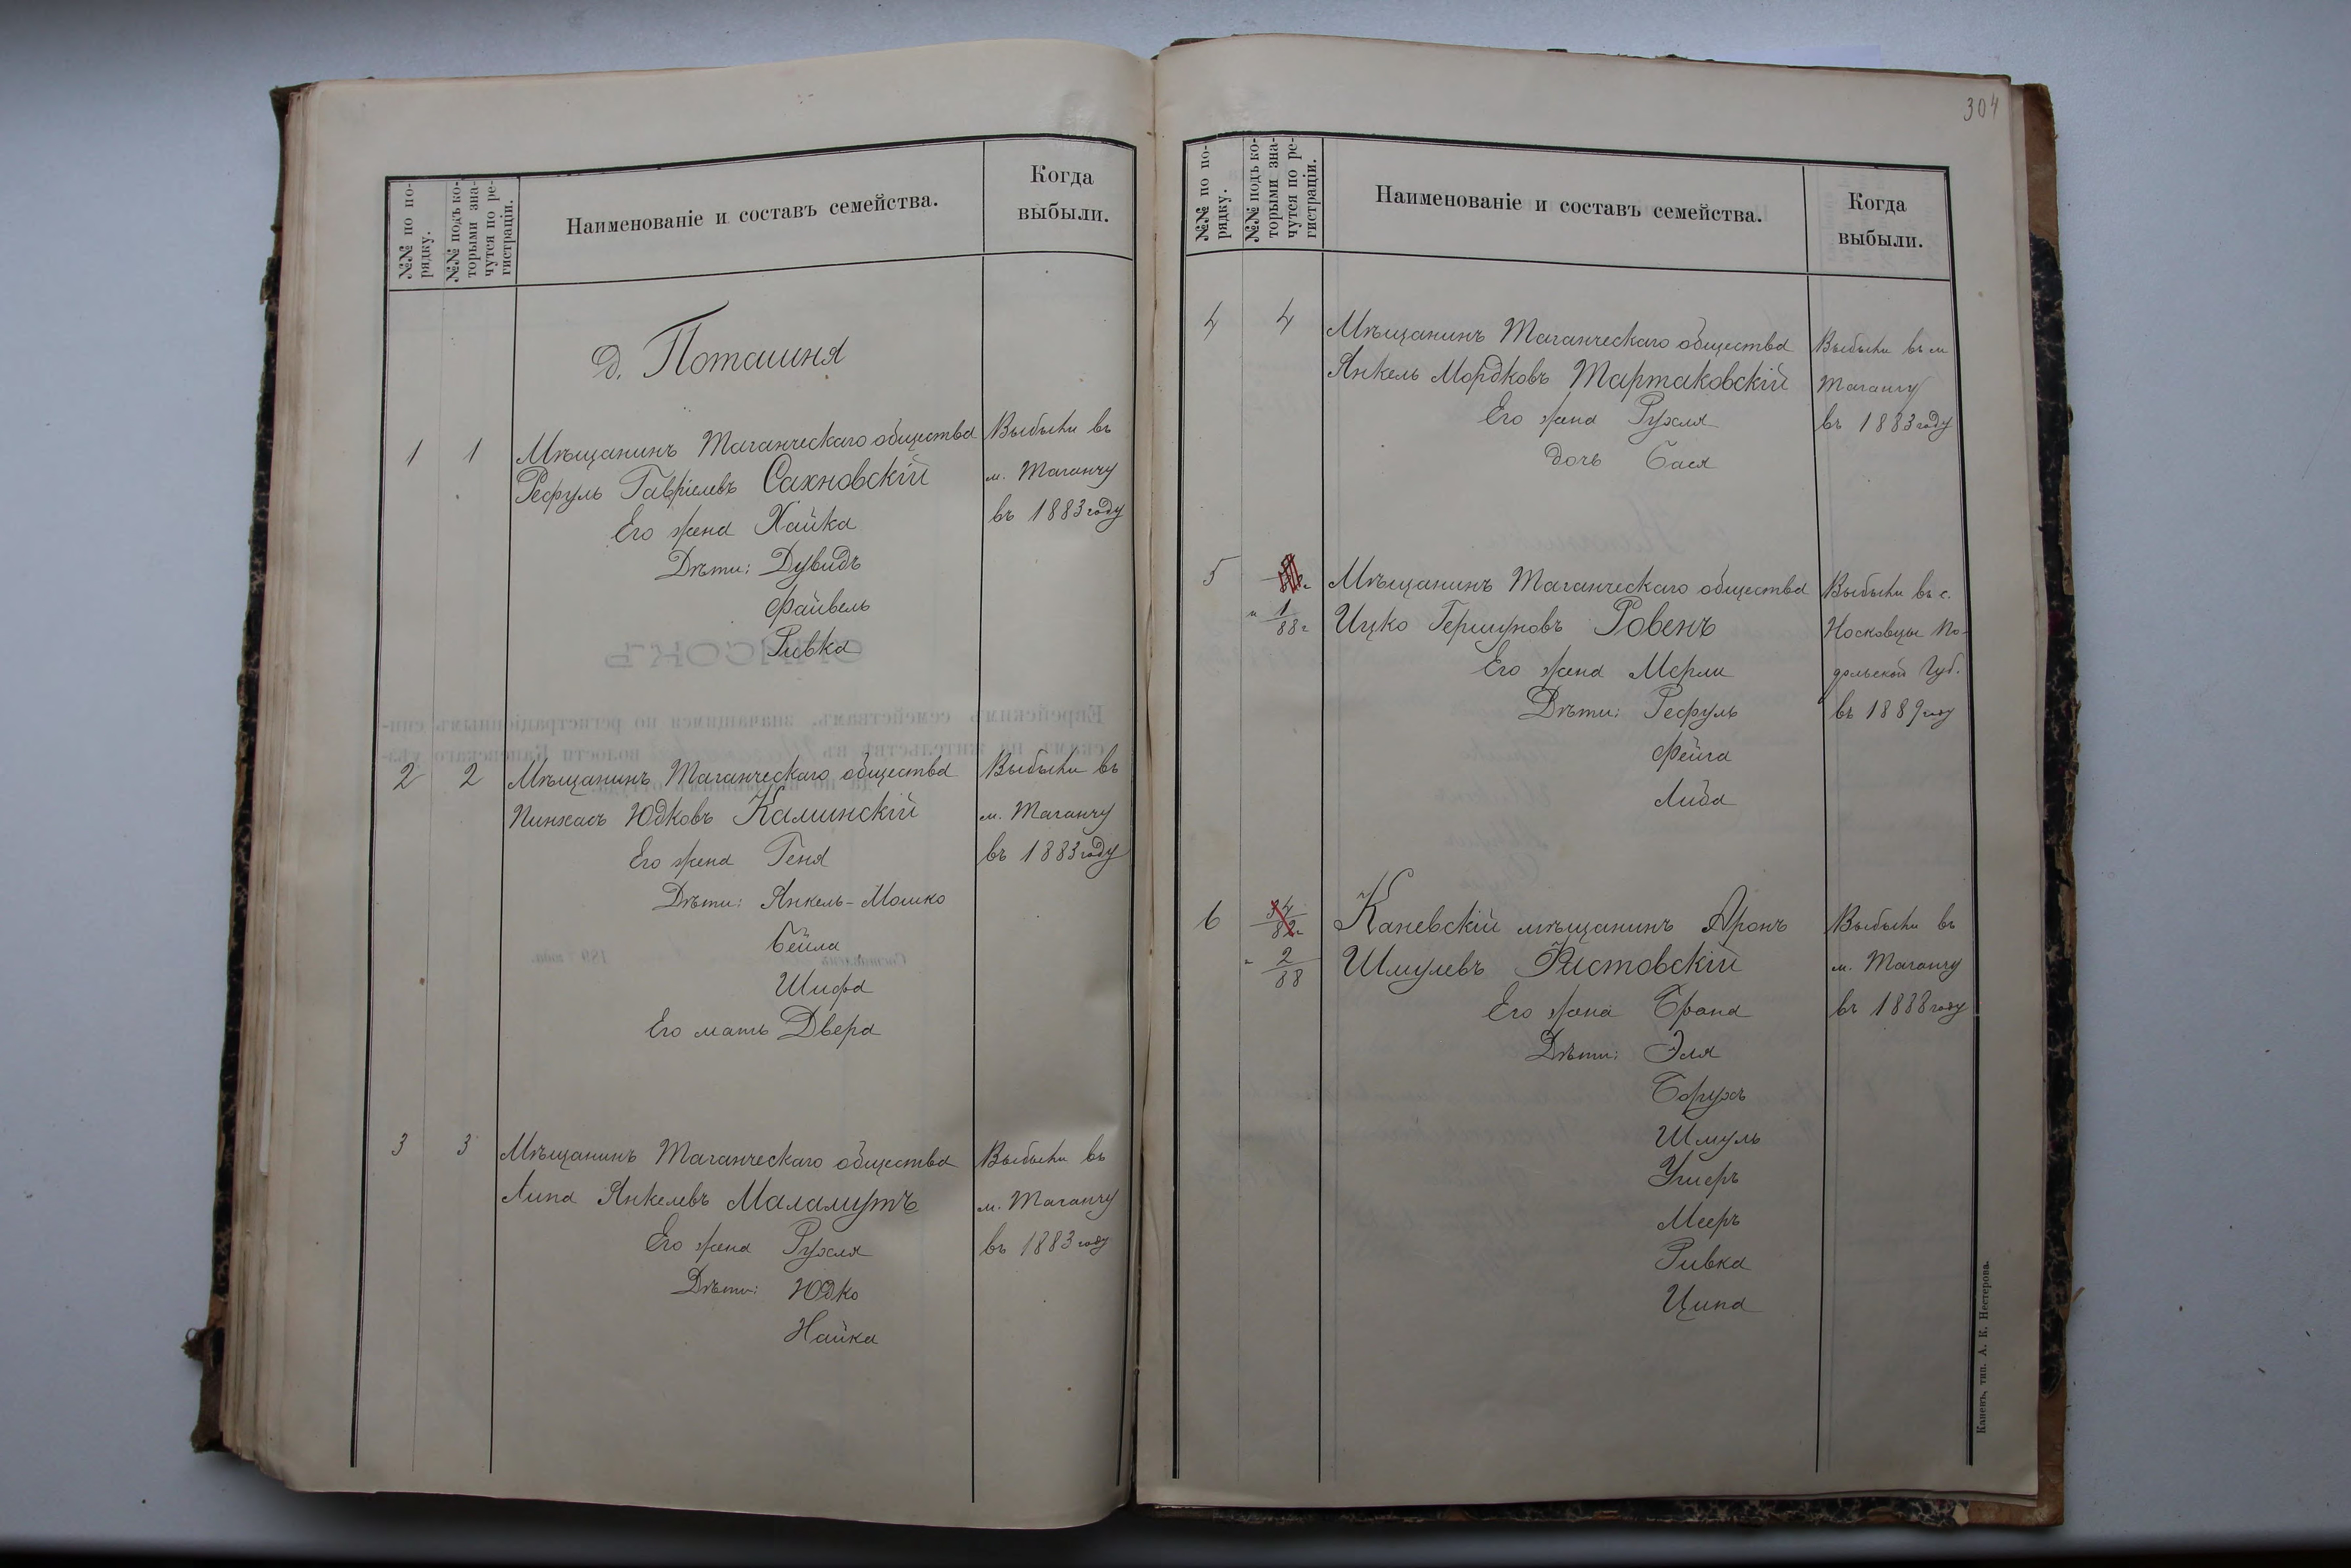 №№ по по-
рядку.
№№ подъ ко-
торыми зна-
чутся по ре-
гистраціи.
Наименованіе и составъ семейства.
Когда
выбыли.
д. Поташня
1 1 Мѣщанинъ Таганческаго общества Выбыли въ
Рефуль Гавріелевъ Сахновскій м. Таганчу
Его жена Хайка въ 1883 году
Дѣти: Дувидъ
Файвель
Ривка
2 2 Мѣщанинъ Таганческаго общества Выбыли въ
Пинхасъ Юдковъ Калинскій м. Таганчу
Его жена Геня въ 1883 году
Дѣти: Янкель-Мошко
Бейла
Шифра
Его мать Двера
3 3 Мѣщанинъ Таганческаго общества Выбыли въ
Липа Янкелевъ Маламутъ м. Таганчу
Его жена Рухля въ 1883 году
Дѣти: Юдко
Хайка
304
№№ по по-
рядку.
№№ подъ ко-
торыми зна-
чутся по ре-
гистраціи.
Наименованіе и составъ семейства.
Когда
выбыли.
4 4 Мѣщанинъ Таганческаго общества Выбыли въ м
Янкель Мордковъ Тартаковскій Таганчу
Его жена Рухля въ 1883 году
дочь Бася
5 Мѣщанинъ Таганческаго общества Выбыли въ с.
" 1/88 г Ицко Гершуновъ Ровенъ Носковцы По-
Его жена Мерли дольской Губ.
Дѣти: Рефуль въ 1889 году
Фейга
Либа
6 34/82 г Каневскій мѣщанинъ Аронъ Выбыли въ
" 2/88 Шмулевъ Ристовскій м. Таганчу
Его жена Брана въ 1888 году
Дѣти: Эля
Борухъ
Шмуль
Ушеръ
Мееръ
Ривка
Ципа
Каневъ, тип. А. К. Нестерова.